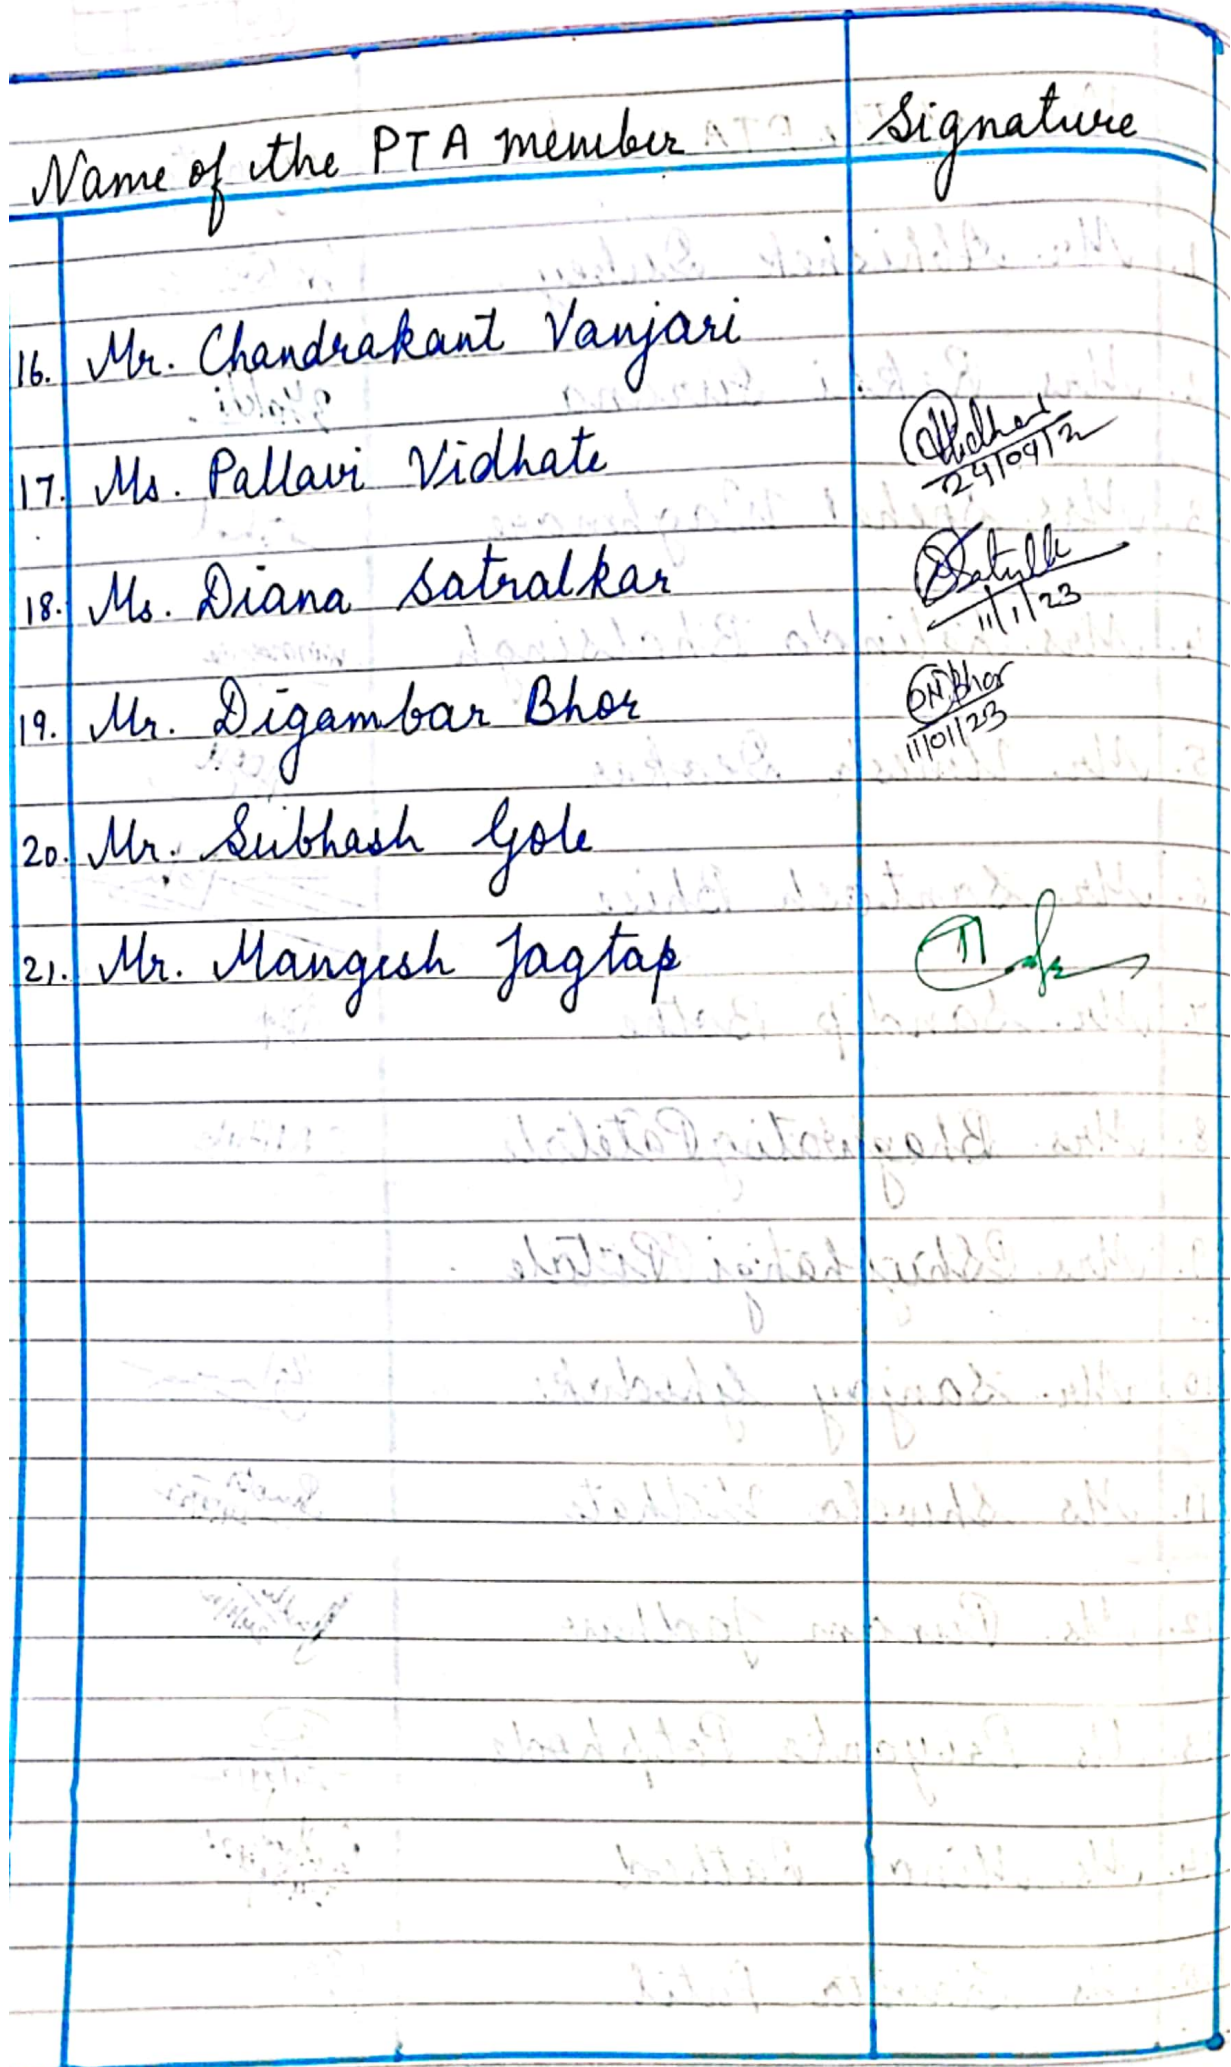 Name of the PTA member Signature
16. Mr. Chandrakant Vanjari
17. Ms. Pallavi Vidhate
18. Ms. Diana Satralkar
11/1/23
19. Mr. Digambar Bhor DN Bhor
11/01/23
20. Mr. Subhash Gole
21. Mr. Mangesh Jagtap